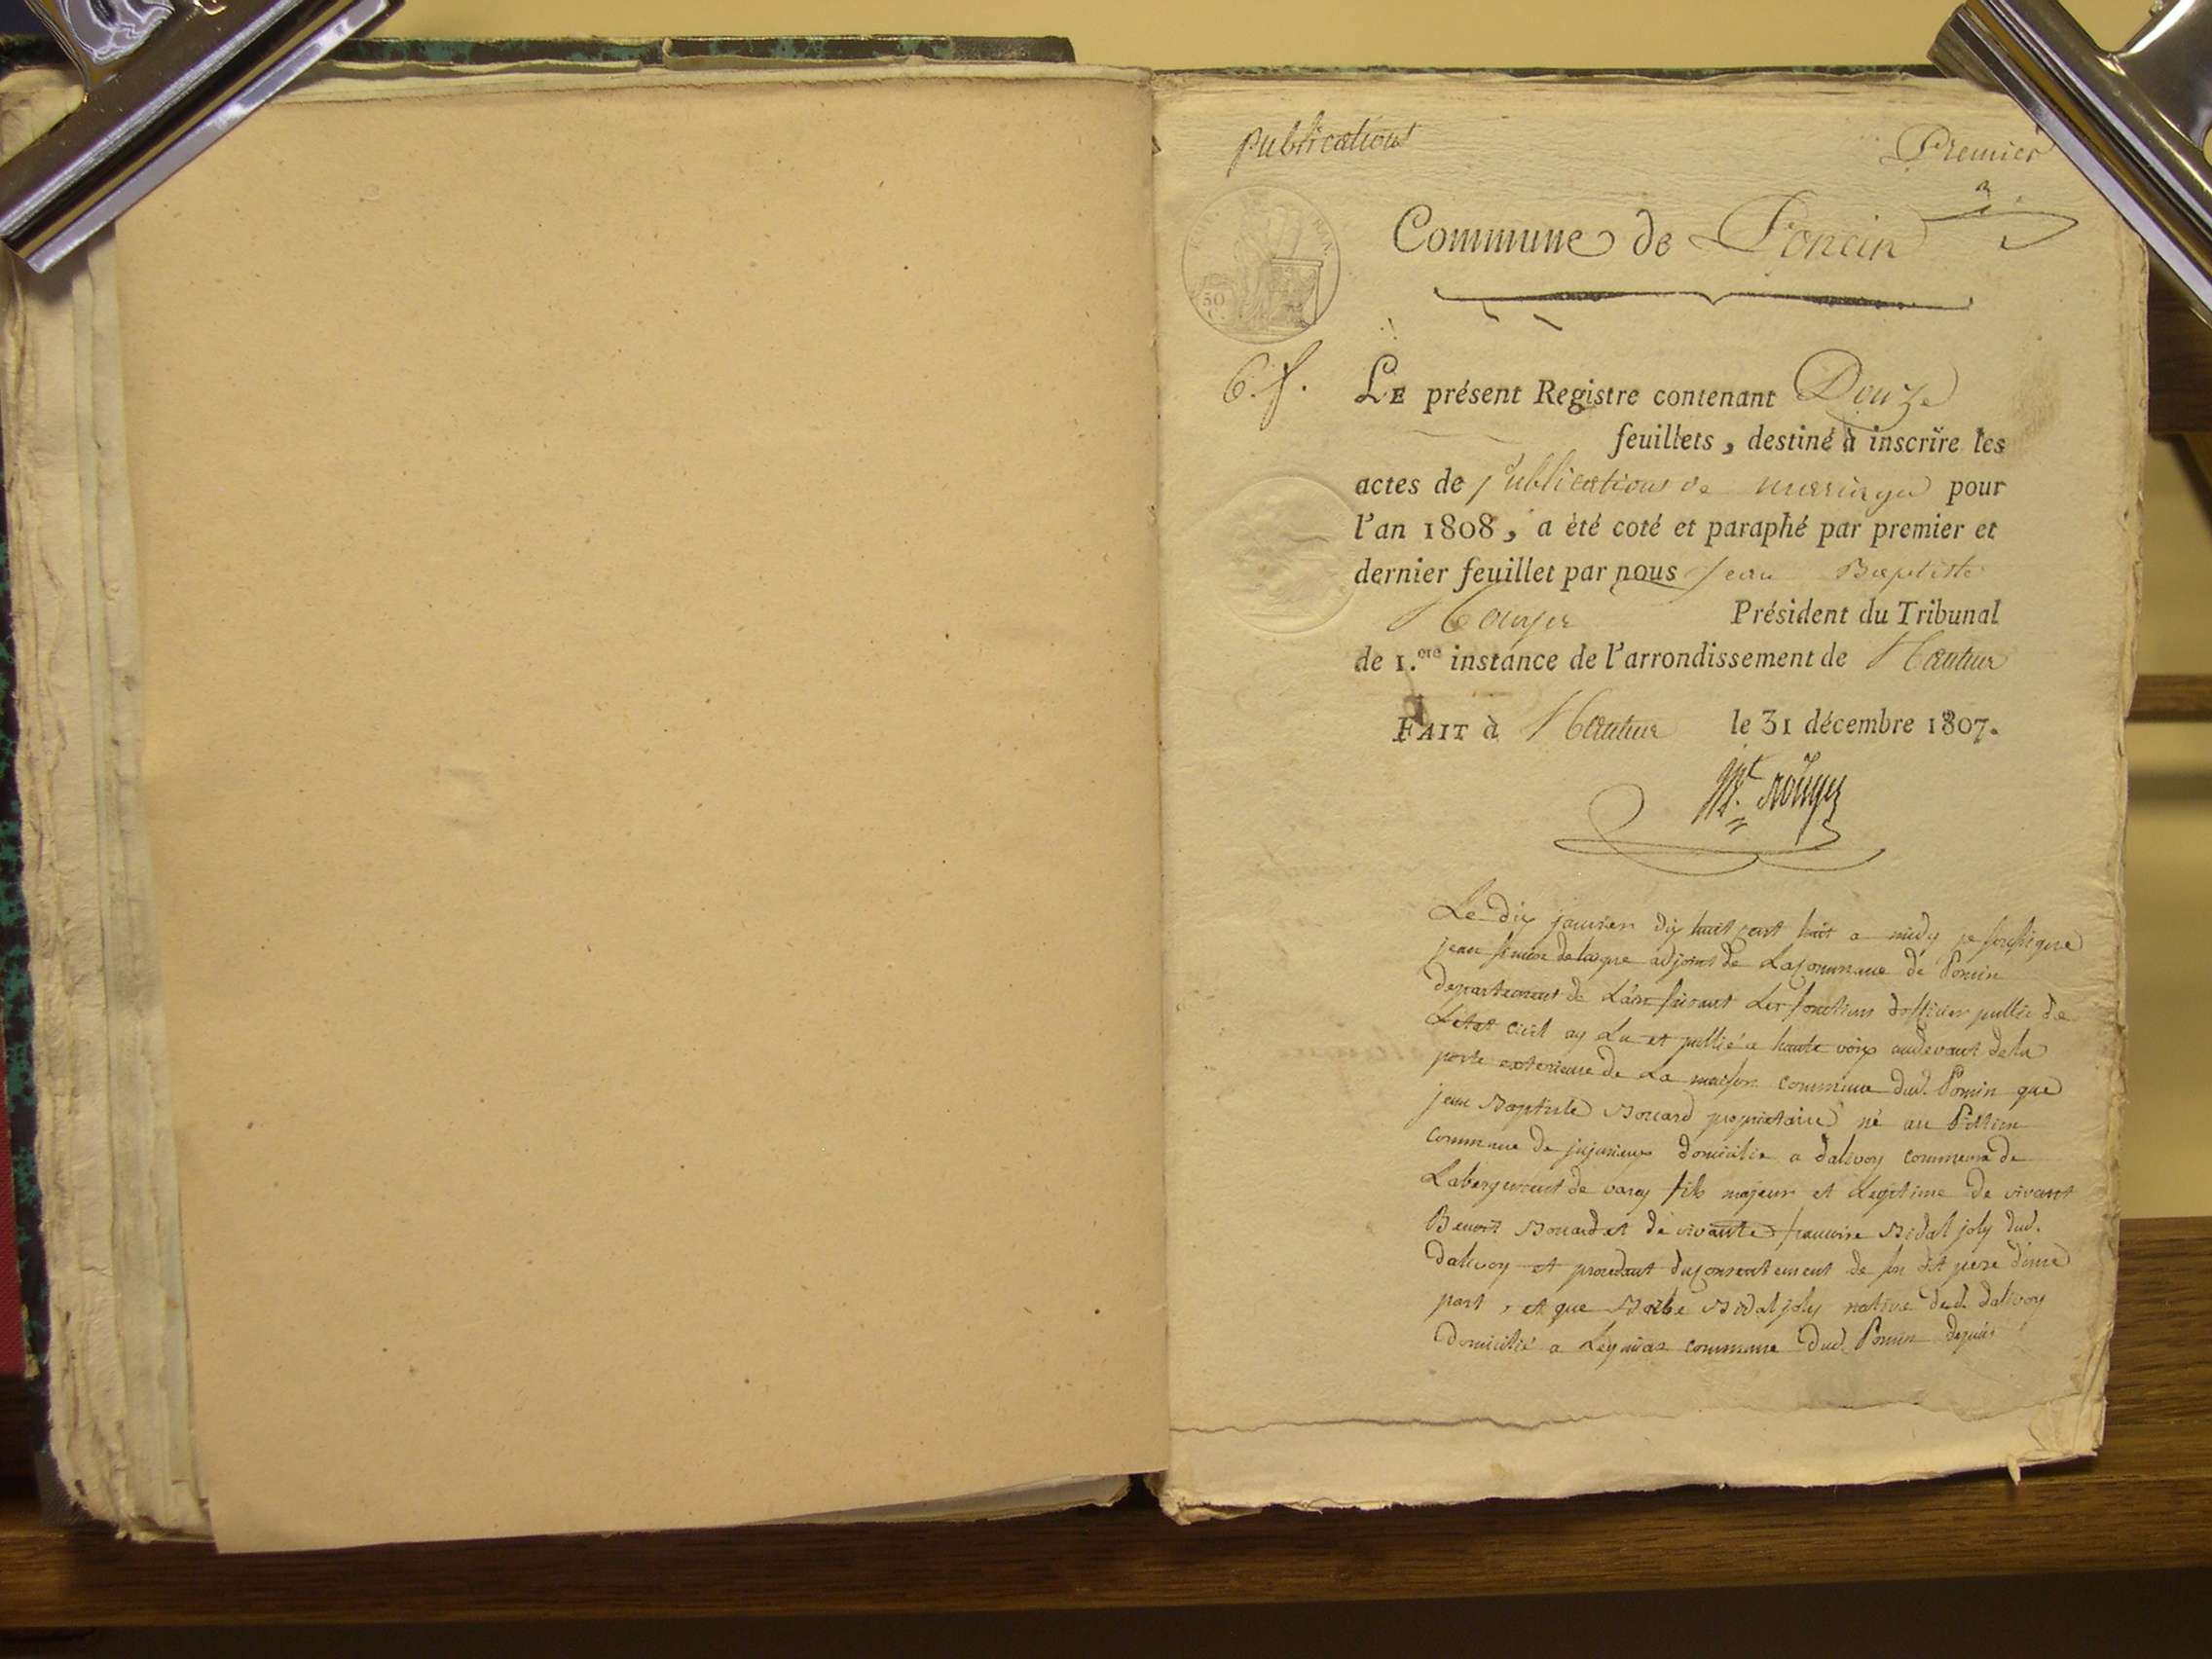 Publications
Premier
Commune de Poncin
50
C.
6. f.
LE présent Registre contenant Douze
feuillets, destiné à inscrire les
actes de publications de mariages pour
l'an 1808, a été coté et paraphé par premier et
dernier feuillet par nous Jean Baptiste
Rouyer Président du Tribunal
de 1.ere instance de l'arrondissement de Nantua
FAIT à Nantua le 31 décembre 1807.
Rouyer
Le dix janvier dix huit cent huit a midy je soussigné
jean adjoint de La commune de Poncin
departement de L'ain faisant Les fonctions d'officier public de
L'etat civil ay Lu et publié a haute voix audevant de la
porte exterieure de La maison commune dud. Poncin que
jean Baptiste Bouard proprietaire né au
commune de jujurieux domicilié a dalivoy commune de
Labergement de varey fils majeur et Legitime de vivant
Benoit Bouard et de vivante francoise Bidal joly dud.
dalivoy et procedant du consentement de son dit pere d'une
part, et que Bidal joly native dud. dalivoy
domicilié a Leymiat commune dud. Poncin depuis